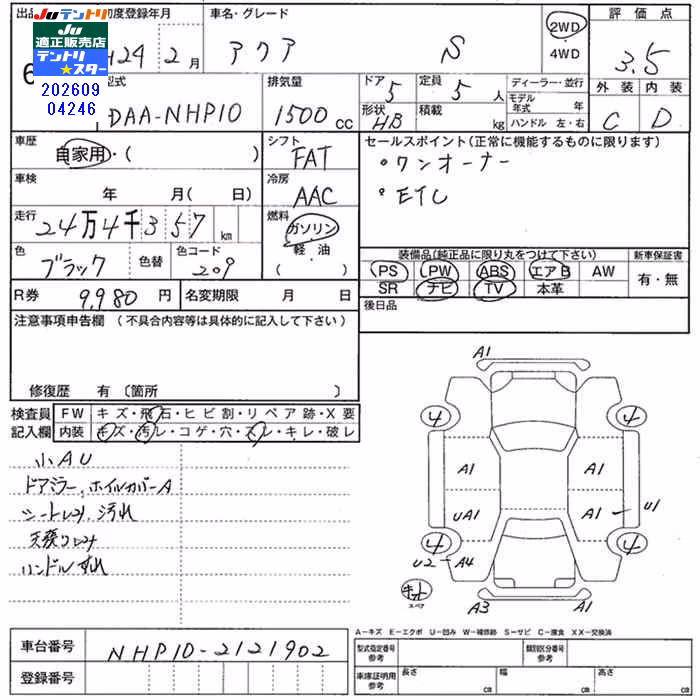 Juテントリ
Ju
適正販売店
テントリ
★スター
202609
04246
初度登録年月
H24 2月
車名・グレード
アクア S
2WD
4WD
評価点
3.5
外装 内装
C D
型式
DAA-NHP10
排気量
1500 cc
ドア 5
定員 5 人
形状 HB
積載 kg
ディーラー・並行
モデル年式 年
ハンドル 左・右
車歴
自家用・( )
シフト
FAT
セールスポイント(正常に機能するものに限ります)
・ワンオーナー
・ETC
車検
年 月( 日)
冷房
AAC
走行
24万4千357 km
燃料
ガソリン
軽・油
( )
色
ブラック
色替
色コード
209
装備品(純正品に限り丸をつけて下さい)
新車保証書
PS PW ABS エアB AW
SR ナビ TV 本革
有・無
R券 9,980 円
名変期限 月 日
後日品
注意事項申告欄(不具合内容等は具体的に記入して下さい)
修復歴 有〔箇所 〕
検査員
記入欄
FW キズ・飛石・ヒビ割・リペア跡・X要
内装 キズ・汚レ・コゲ・穴・スレ・キレ・破レ
小AU
ドアミラー、ホイルカバーA
シートスレ、汚れ
ハンドルすれ
A1
4 4
A1 A1
UA1 A1 U1
4 4
U2 A4
スペア
A3 A1
A−キズ E−エクボ U−凹み W−補修跡 S−サビ C−腐食 XX−交換済
車台番号
NHP10-2121902
登録番号
型式指定番号
参考
類別区分番号
参考
車庫証明用
参考
長さ cm
幅 cm
高さ cm